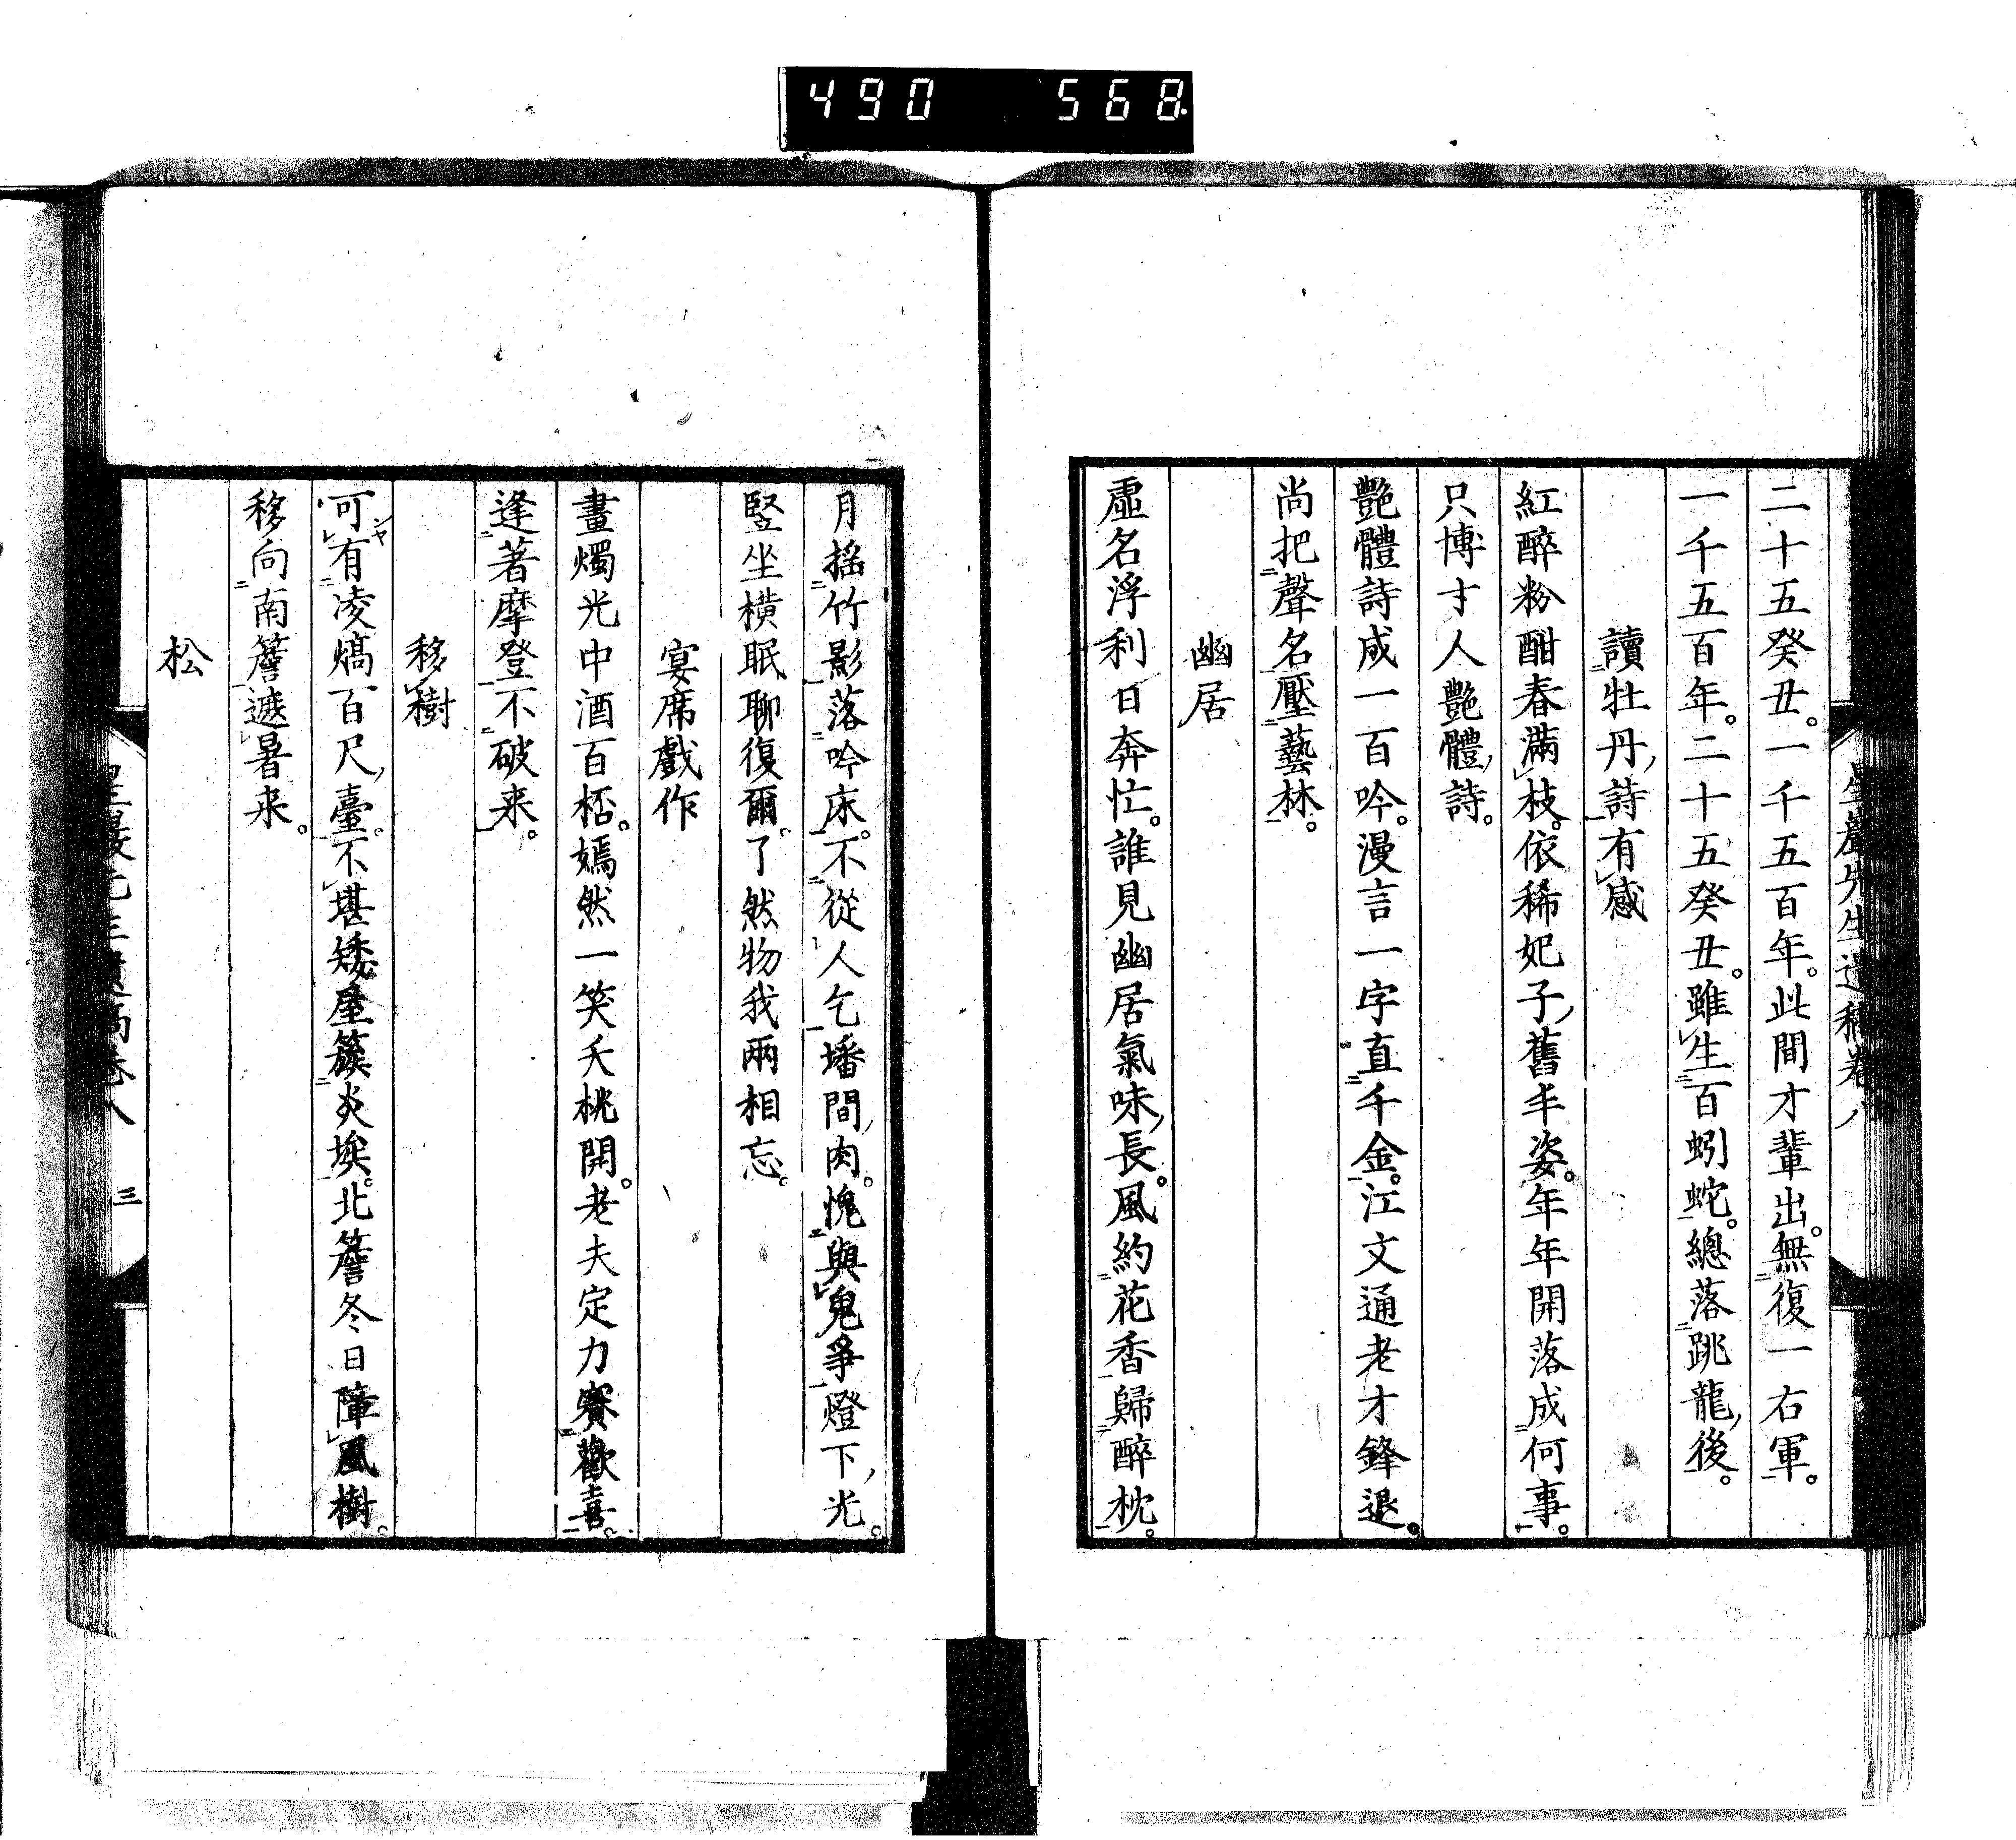 490 568
星巖先生遺稿卷八
二十五癸丑。一千五百年。此間才輩出。無復一右軍。
一千五百年。二十五癸丑。雖生百蚓蛇。總落跳龍後。
讀牡丹詩有感
紅醉粉酣春滿枝。依稀妃子舊丰姿。年年開落成何事。
只博才人艷體詩。
艷體詩成一百吟。漫言一字直千金。江文通老才鋒退。
尚把聲名壓藝林。
幽居
虛名浮利日奔忙。誰見幽居氣味長。風約花香歸醉枕。
月搖竹影落吟床。不從人乞墦間肉。愧與鬼爭燈下光。
竪坐橫眠聊復爾。了然物我兩相忘。
宴席戲作
畫燭光中酒百桮。嫣然一笑夭桃開。老夫定力賽歡喜。
逢著摩登不破来。
移樹
可有凌熇百尺臺。不堪矮屋簇炎埃。北簷冬日障風樹。
移向南簷遮暑来。
松
星巖先生遺稿卷八 三